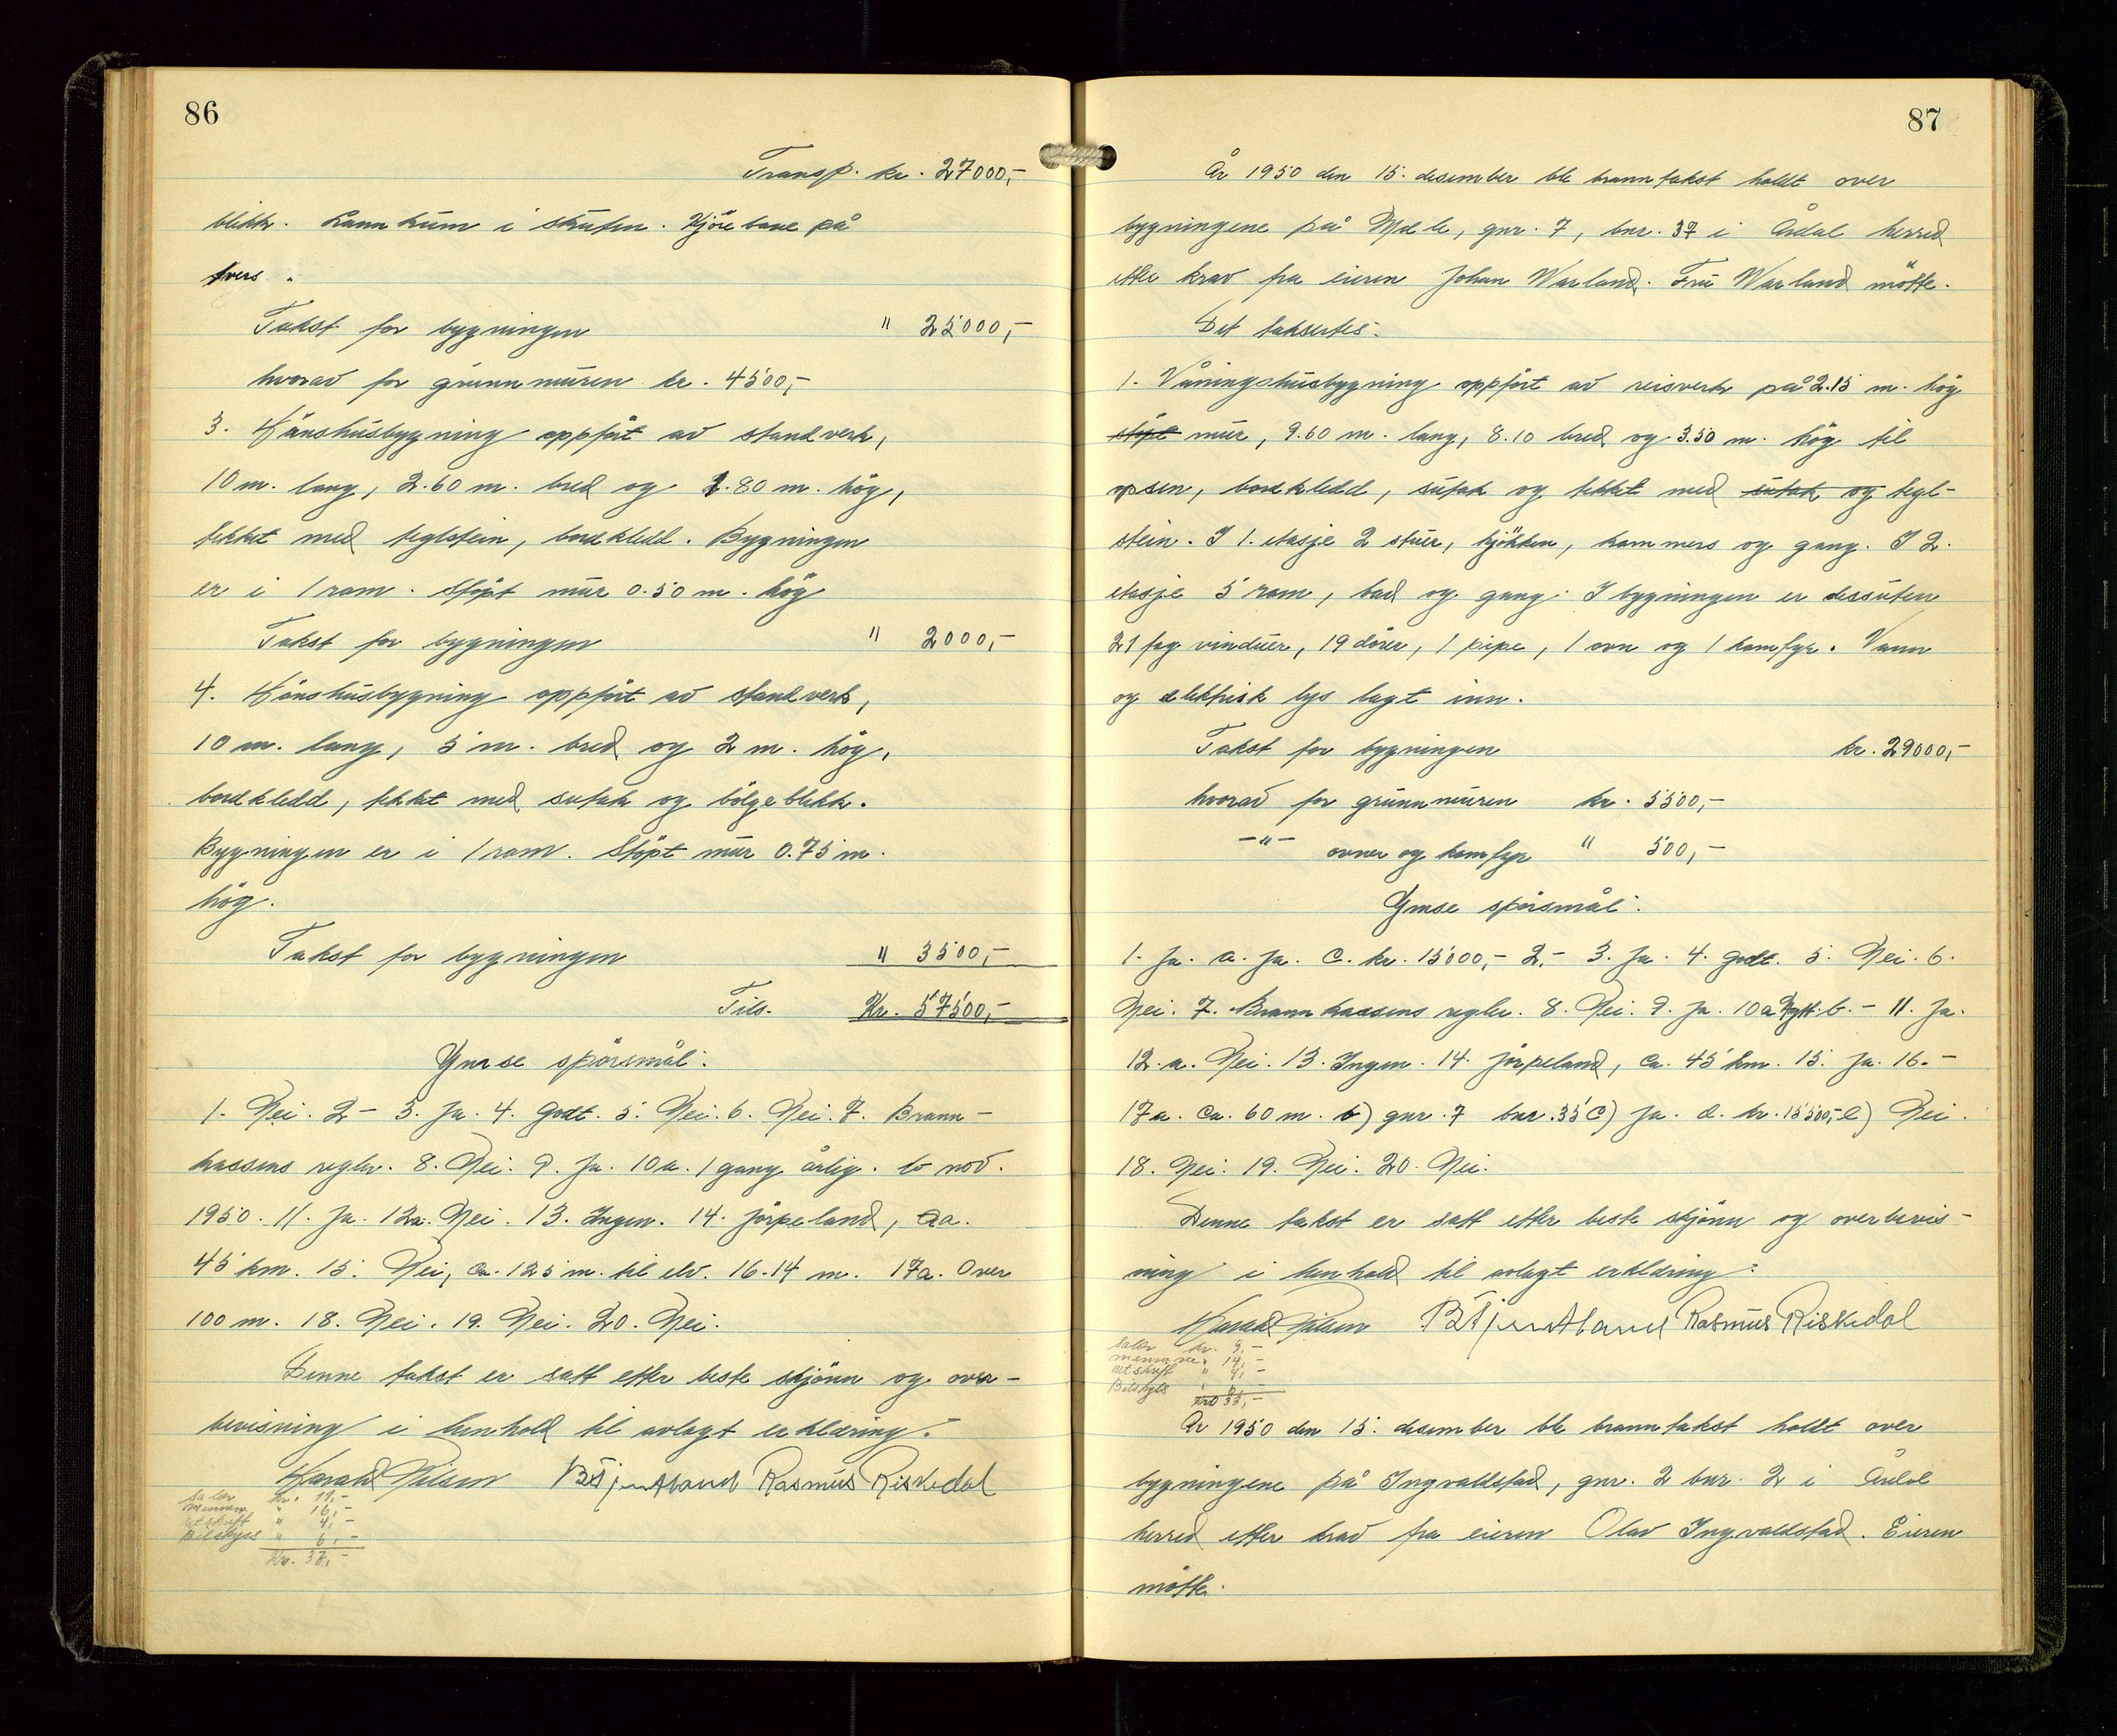 86
Transp. kr. 27000,-
blikk. Lannkum i skuten. Kjörebane på
tvers.
Takst for bygningen " 25000,-
hvorav for grunnmuren kr. 4500,-
3. Hönshusbygning oppfört av standverk,
10 m. lang, 2.60 m. bred og 1.80 m. hög,
tekket med teglstein, bordkledd. Bygningen
er i 1 rom. Stöpt mur 0.50 m. hög
Takst for bygningen " 2000,-
4. Hönshusbygning oppfört av standverk,
10 m. lang, 5 m. bred og 2 m. hög,
bordkledd, tekket med sutak og bölgeblikk.
Bygningen er i 1 rom. Stöpt mur 0.75 m.
hög.
Takst for bygningen " 3500,-
Tils. Kr. 57500,-
Ymse spörsmål:
1. Nei. 2 - 3. Ja. 4. Godt. 5. Nei. 6. Nei. 7. Brann-
kassens regler. 8. Nei. 9. Ja. 10a. 1 gang årlig. b nov.
1950. 11. Ja. 12a. Nei. 13. Ingen. 14. Jörpeland, ca.
45 km. 15. Nei, ca. 125 m. til elv. 16. 14 m. 17a. Over
100 m. 18. Nei. 19. Nei. 20. Nei.
Denne takst er satt etter beste skjönn og over-
bevisning i henhold til avlagt erklæring.
Harald Nilsen Rasmus Riskedal
Kr. 11,-
" 16,-
utskrift " 4,-
Bilskyss " 6,-
Kr. 37,-
87
År 1950 den 15. desember ble branntakst holdt over
bygningene på Mæle, gnr. 7, bnr. 37 i Årdal herred
etter krav fra eieren Johan Warland. Fru Warland mötte.
Det taksertes:
1. Våningshusbygning oppfört av reisverk på 2.15 m. hög
stöpt mur, 9.60 m. lang, 8.10 bred og 3.50 m. hög til
opsen, bordkledd, sutak og tekket med sutak og tegl-
stein. I 1. etasje 2 stuer, kjökken, kammers og gang. I 2.
etasje 5 rom, bad og gang. I bygningen er dessuten
21 fag vinduer, 19 dörer, 1 pipe, 1 ovn og 1 komfyr. Vann
og elektrisk lys lagt inn.
Takst for bygningen kr. 29000,-
hvorav for grunnmuren kr. 5500,-
-"- ovner og komfyr " 500,-
Ymse spörsmål:
1. Ja. a. Ja. c. kr. 15000,- 2.- 3. Ja. 4. Godt. 5. Nei. 6.
Nei. 7. Brannkassens regler. 8. Nei. 9. Ja. 10a Nytt. b. - 11. Ja.
12.a. Nei. 13. Ingen. 14. Jörpeland, ca. 45 km. 15. Ja. 16. -
17a. Ca. 60 m. b) gnr. 7 bnr. 35 c) Ja. d. kr. 15500,- e) Nei.
18. Nei. 19. Nei. 20. Nei.
Denne takst er satt etter beste skjönn og overbevis-
ning i henhold til avlagt erklæring.
Harald Nilsen Rasmus Riskedal
kr. 9,-
" 14,-
utskrift " 4,-
Bilskyss " 6,-
Kr. 33,-
År 1950 den 15. desember ble branntakst holdt over
bygningene på Ingvaldstad, gnr. 2 bnr. 2 i Årdal
herred etter krav fra eieren Olav Ingvaldstad. Eieren
mötte.